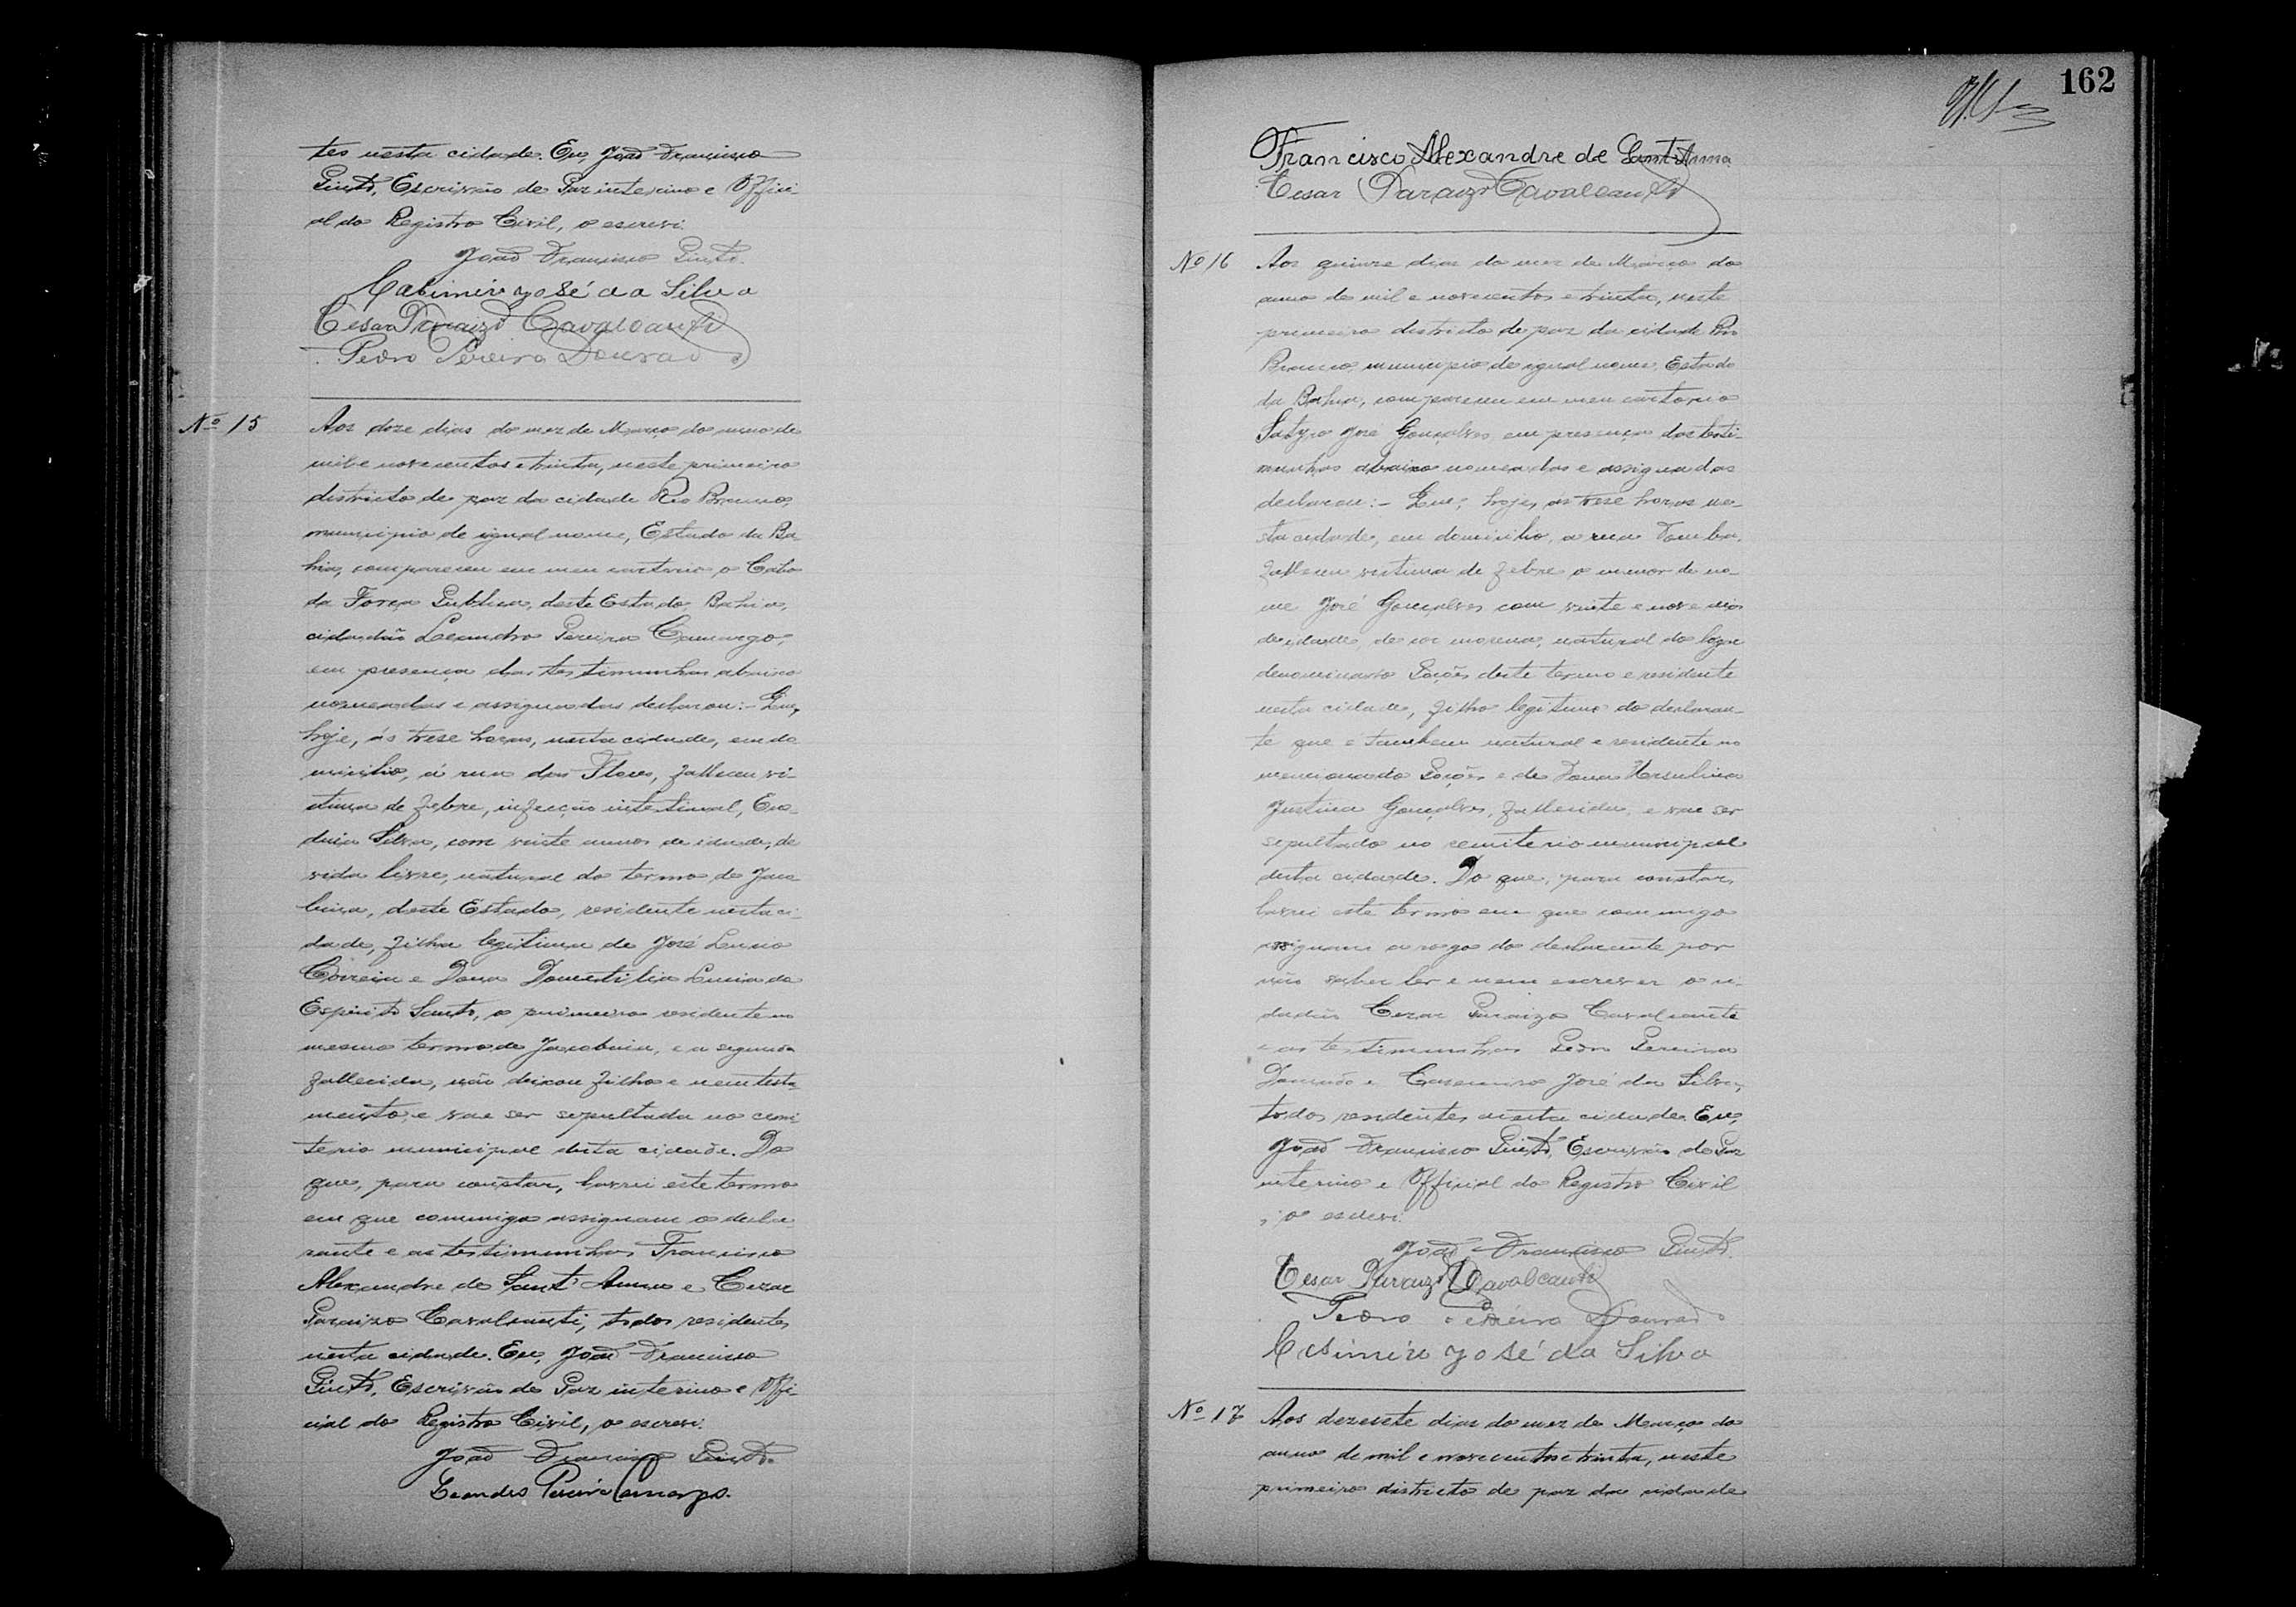 tes nesta cidade. Eu, João Francisco
Pinto, Escrivão de Paz interino e Offici-
al do Registro Civil, o escrevi.
João Francisco Pinto.
Casimiro José da Silva
Cesar Paraizo Cavalcanti
Pedro Pereira Dourado
Nº 15
Aos doze dias do mez de Março do anno de
mil e novecentos e trinta, neste primeiro
districto de paz da cidade Rio Branco,
municipio de igual nome, Estado da Ba-
hia, compareceu em meu cartorio o Cabo
da Força Publica, deste Estado, Bahia,
cidadão Leandro Pereira Camargo,
em presença das testimunhas abaixo
nomeadas e assignadas declarou:- Que,
hoje, ás trese horas, nesta cidade, em do-
micilio, á rua das Flores, falleceu vi-
ctima de febre, infecção intestinal,
Silva, com vinte annos de idade, de
vida livre, natural do termo de Jaco-
bina, deste Estado, residente nesta ci-
dade, filha legitima de José
Correia e Dona Domitilia Lucia do
Espirito Santo, o primeiro residente no
mesmo termo de Jacobina, e a segunda
fallecida, não deixou filhos e nem testa-
mento, e vae ser sepultada no cemi-
terio municipal desta cidade. Do
que, para constar, lavrei este termo
em que commigo assignam o decla-
rante e as testimunhas Francisco
Alexandre de Sant'Anna e Cezar
Paraizo Cavalcanti, todos residentes
nesta cidade. Eu, João Francisco
Pinto, Escrivão de Paz interino e Offi-
cial do Registro Civil, o escrevi.
João Francisco Pinto.
Leandro Pereira Camargo.
162
Francisco Alexandre de Sant'Anna
Cesar Paraizo Cavalcanti
Nº 16
Aos quinze dias do mez de Março do
anno de mil e novecentos e trinta, neste
primeiro districto de paz da cidade Rio
Branco, municipio de igual nome, Estado
da Bahia, compareceu em meu cartorio
Satyro José Gonçalves, em presença das testi-
munhas abaixo nomeadas e assignadas
declarou:- Que, hoje, ás trese horas, ne-
sta cidade, em domicilio, a rua Tomba,
falleceu victima de febre o menor de no-
me José Gonçalves com vinte e nove
de idade, de cor morena, natural do logar
denominado deste termo e residente
nesta cidade, filho legitimo do declaran-
te que é tambem natural e residente no
mencionado e de Dona Hersulina
Justina Gonçalves, fallecida, e vae ser
sepultado no cemiterio municipal
desta cidade. Do que, para constar,
lavrei este termo em que commigo
assignam a rogo do declarante por
não saber ler e nem escrever o ci-
dadão Cezar Paraizo Cavalcanti
e as testimunhas Pedro Pereira
Dourado e Casemiro José da Silva,
todos residentes nesta cidade. Eu,
João Francisco Pinto, Escrivão de Paz
interino e Official do Registro Civil
, o escrevi.
João Francisco Pinto.
Cesar Paraizo Cavalcanti
Pedro Pereira Dourado
Casimiro José da Silva
Nº 17
Aos dezesete dias do mez de Março do
anno de mil e novecentos e trinta, neste
primeiro districto de paz da cidade